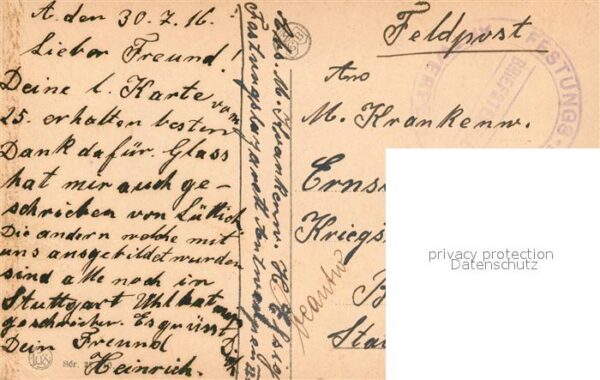 A. den 30.7.16.
Lieber Freund!
Deine l. Karte vom
25. erhalten besten
Dank dafür. Glass
hat mir auch ge-
schrieben von Lüttich
Die andern welche mit
uns ausgebildet wurden
sind alle noch in
Stuttgart Uhl hat
geschrieben. Es grüsst
Dein Freund
Heinrich.
Abs. M. Krankenw. H.
Festungslazarett Antwerpen
Feldpost
An
M. Krankenw.
Erns
Kriegs
B
Sta
FESTUNGS
privacy protection
Datenschutz
Ser.